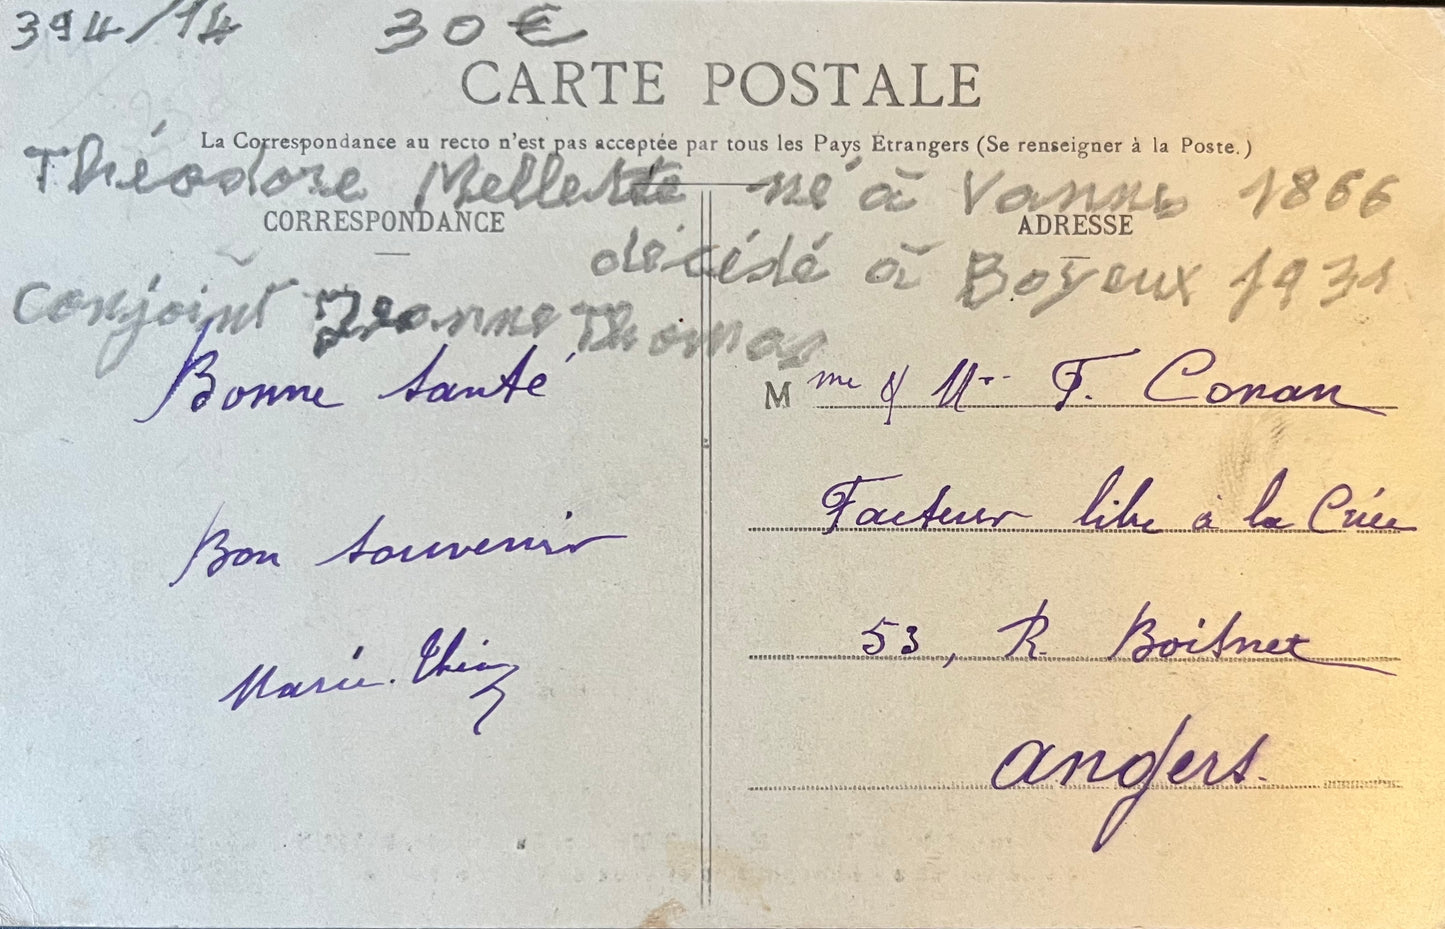 394/14 30 €
CARTE POSTALE
La Correspondance au recto n'est pas acceptée par tous les Pays Étrangers (Se renseigner à la Poste.)
Théodore né à Vannes 1866
CORRESPONDANCE
ADRESSE
décédé à Boyeux 1931
Conjoint Jeanne Thomas
Bonne santé
Bon souvenir
Marie
Mme & Mr F. Conan
Facteur libre à la Criée
53, R. Boisnet
Angers.